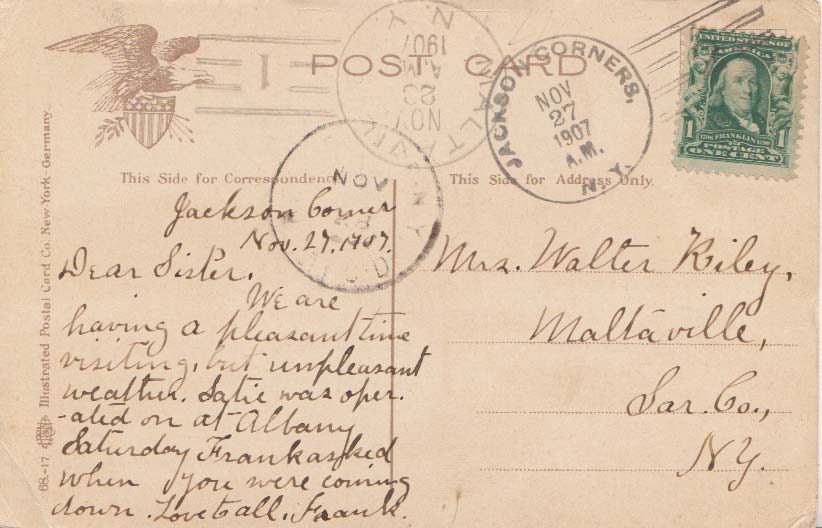 POST CARD
1
MALTAVILLE
N.Y.
NOV
23
A.M.
1907
JACKSON CORNERS,
NOV
27
1907
A.M.
N.Y.
UNITED STATES OF AMERICA
1 FRANKLIN 1
POSTAGE
ONE CENT
This Side for Correspondence
This Side for Address Only.
NOV
N.Y.
REC'D
Jackson Corner
Nov. 27, 1907.
Dear Sister,
We are
having a pleasant time
visiting, but unpleasant
weather. Satie was oper-
-ated on at Albany
Saturday Frank asked
when you were coming
down. Love to all. Frank.
Mrs. Walter Riley,
Maltaville,
Sar. Co.,
NY.
68-17 Illustrated Postal Card Co. New York-Germany.